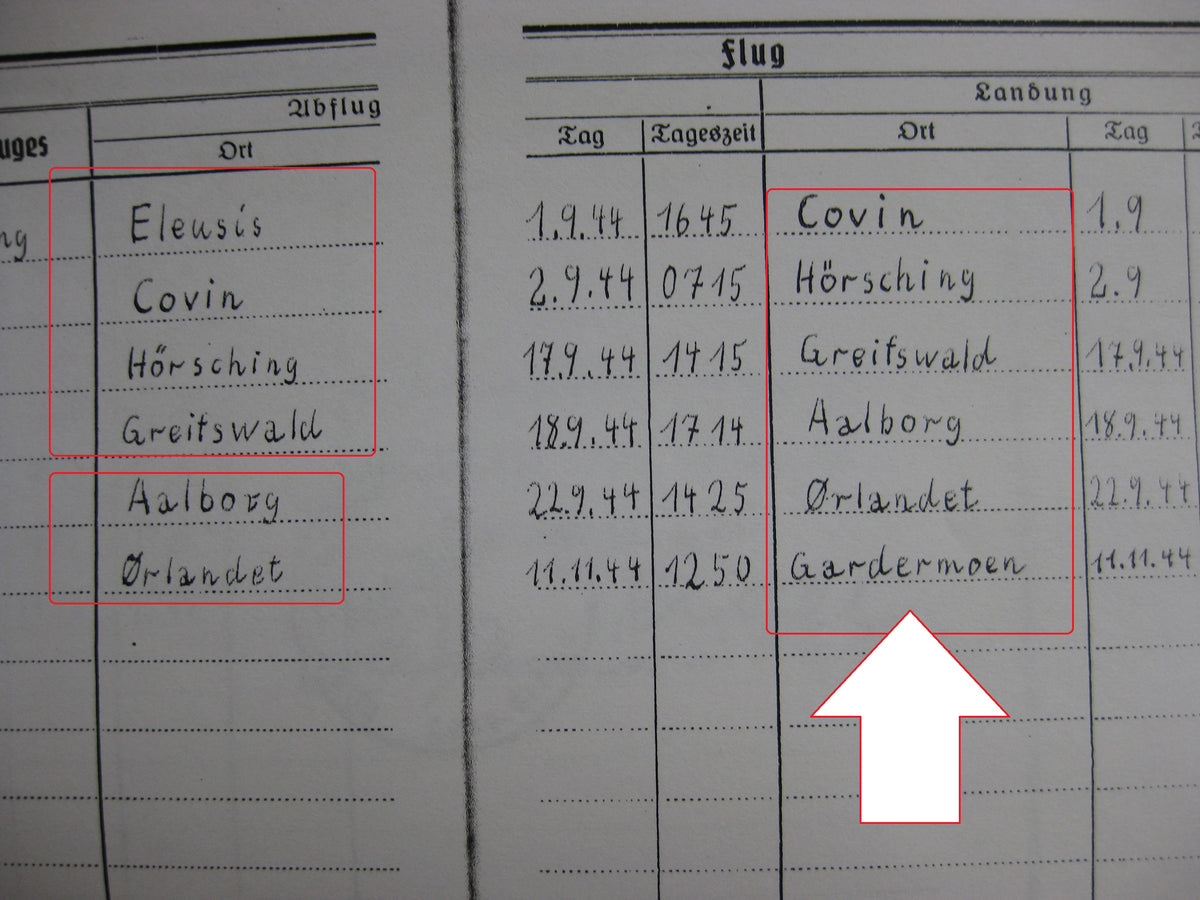 Flug
Abflug Landung
uges Ort Tag Tageszeit Ort Tag
ng Eleusis 1.9.44 1645 Covin 1.9
Covin 2.9.44 0715 Hörsching 2.9
Hörsching 17.9.44 1415 Greifswald 17.9.44
Greifswald 18.9.44 1714 Aalborg 18.9.44
Aalborg 22.9.44 1425 Ørlandet 22.9.44
Ørlandet 11.11.44 1250 Gardermoen 11.11.44